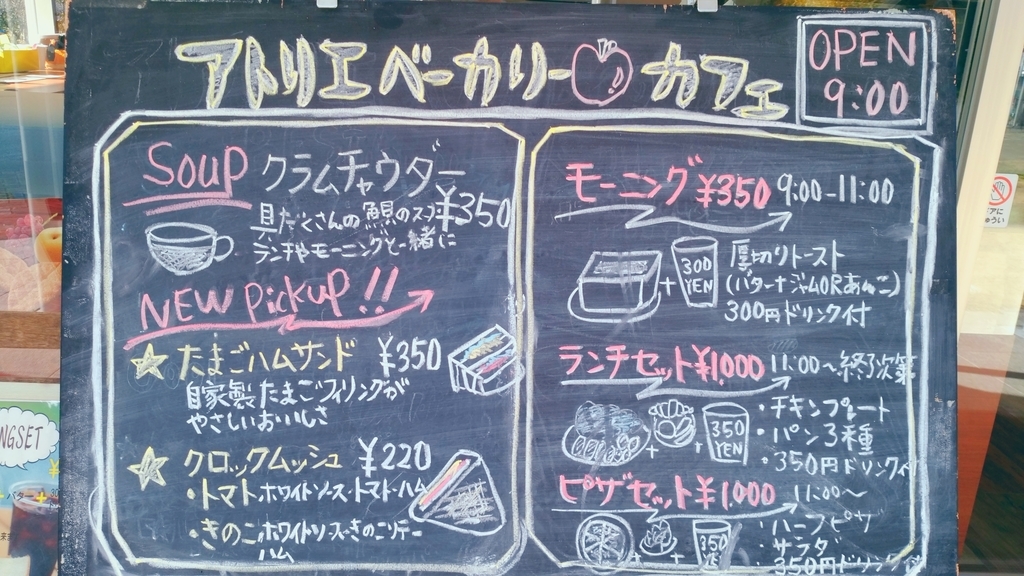 アトリエベーカリーカフェ
OPEN
9:00
Soup クラムチャウダー
¥350
具たくさんの蜆のスープ
ランチやモーニングと一緒に
NEW Pickup!!
たまごハムサンド ¥350
自家製たまごフィリングが
やさしいおいしさ
クロックムッシュ ¥220
・トマト ホワイトソース・トマト・ハム
・きのこ ホワイトソース・きのこソテー
ハム
モーニング ¥350 9:00-11:00
300
YEN
厚切りトースト
(バターナジャムORあんこ)
300円ドリンク付
ランチセット¥1,000 11:00〜終了次第
350
YEN
・チキンプレート
・パン3種
・350円ドリンク付
ピザセット¥1,000 11:00〜
350
・ハーフピザ
・サラダ
・350円ドリンク付
NGSET
バター